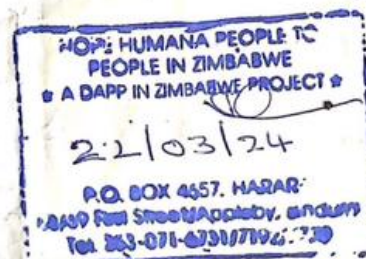 HOPE HUMANA PEOPLE TO
PEOPLE IN ZIMBABWE
A DAPP IN ZIMBABWE PROJECT
22/03/24
P.O. BOX 4657. HARAR
Street/Appleby,
Tel. 263-071-6731/